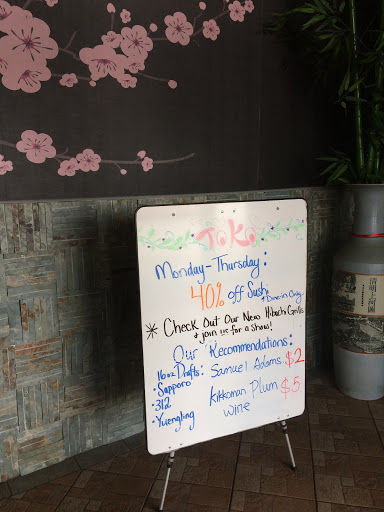 ToKo
Monday-Thursday:
40% off Sushi
* Dine-in Only
* Check Out Our New Hibachi Grills
& join us for a show!
Our Recommendations:
16oz Drafts: Samuel Adams $2
• Sapporo
• 312
• Yuengling
Kikkoman Plum $5
Wine